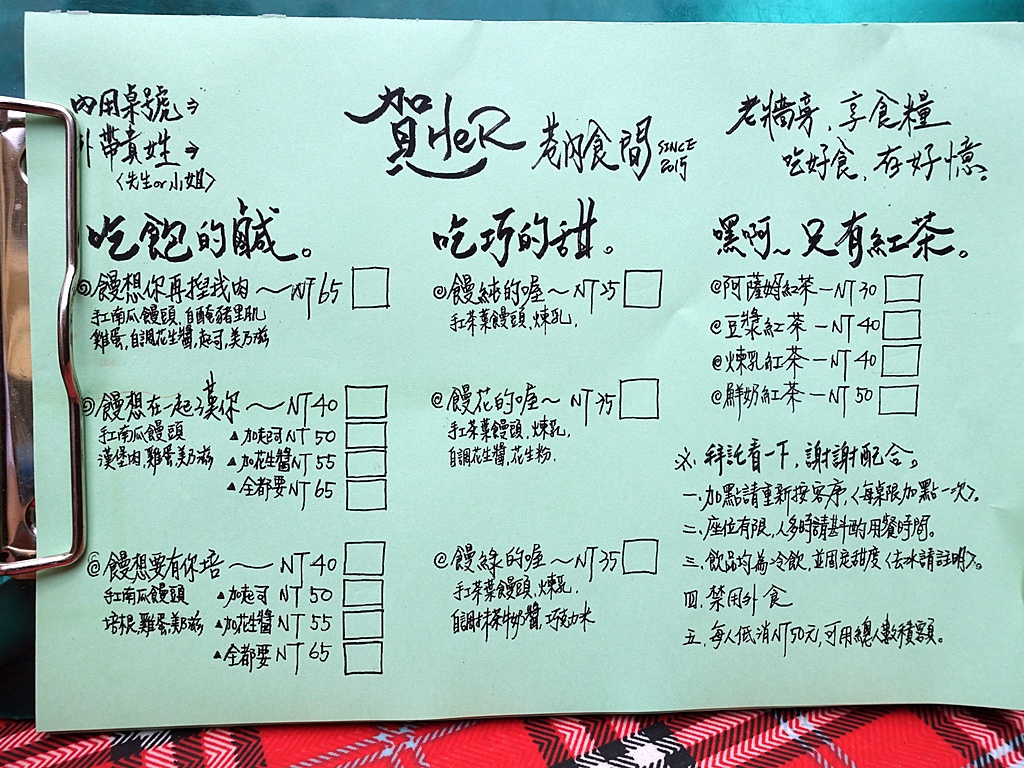 內用桌號→
外帶貴姓→
(先生or小姐)
賀HeR 巷內食間 SINCE 2015
老牆旁、享食糧
吃好食、存好憶。
吃飽的鹹。
@饅想你再捏我肉～NT65
紅南瓜饅頭,自醃豬里肌
雞蛋,自調花生醬,起司,美乃滋
@饅想在一起漢你～NT40
紅南瓜饅頭 ▲加起司NT50
漢堡肉,雞蛋,美乃滋 ▲加花生醬NT55
▲全都要NT65
@饅想要有你培～NT40
紅南瓜饅頭 ▲加起司NT50
培根,雞蛋,美乃滋 ▲加花生醬NT55
▲全都要NT65
吃巧的甜。
@饅純的喔～NT25
紅茶葉饅頭,煉乳,
@饅花的喔～NT35
紅茶葉饅頭,煉乳,
自調花生醬,花生粉.
@饅綠的喔～NT35
紅茶葉饅頭,煉乳.
自調抹茶牛奶醬,巧克力米
嘿啊~只有紅茶。
@阿薩姆紅茶—NT30
@豆漿紅茶—NT40
@煉乳紅茶—NT40
@鮮奶紅茶—NT50
※拜託看一下,謝謝配合。
一、加點請重新按客序,(每桌限加點一次)。
二、座位有限,人多時請斟酌用餐時間。
三、飲品均為冷飲,並固定甜度(去冰請註明)。
四、禁用外食
五、每人低消NT50元,可用總人數積額。